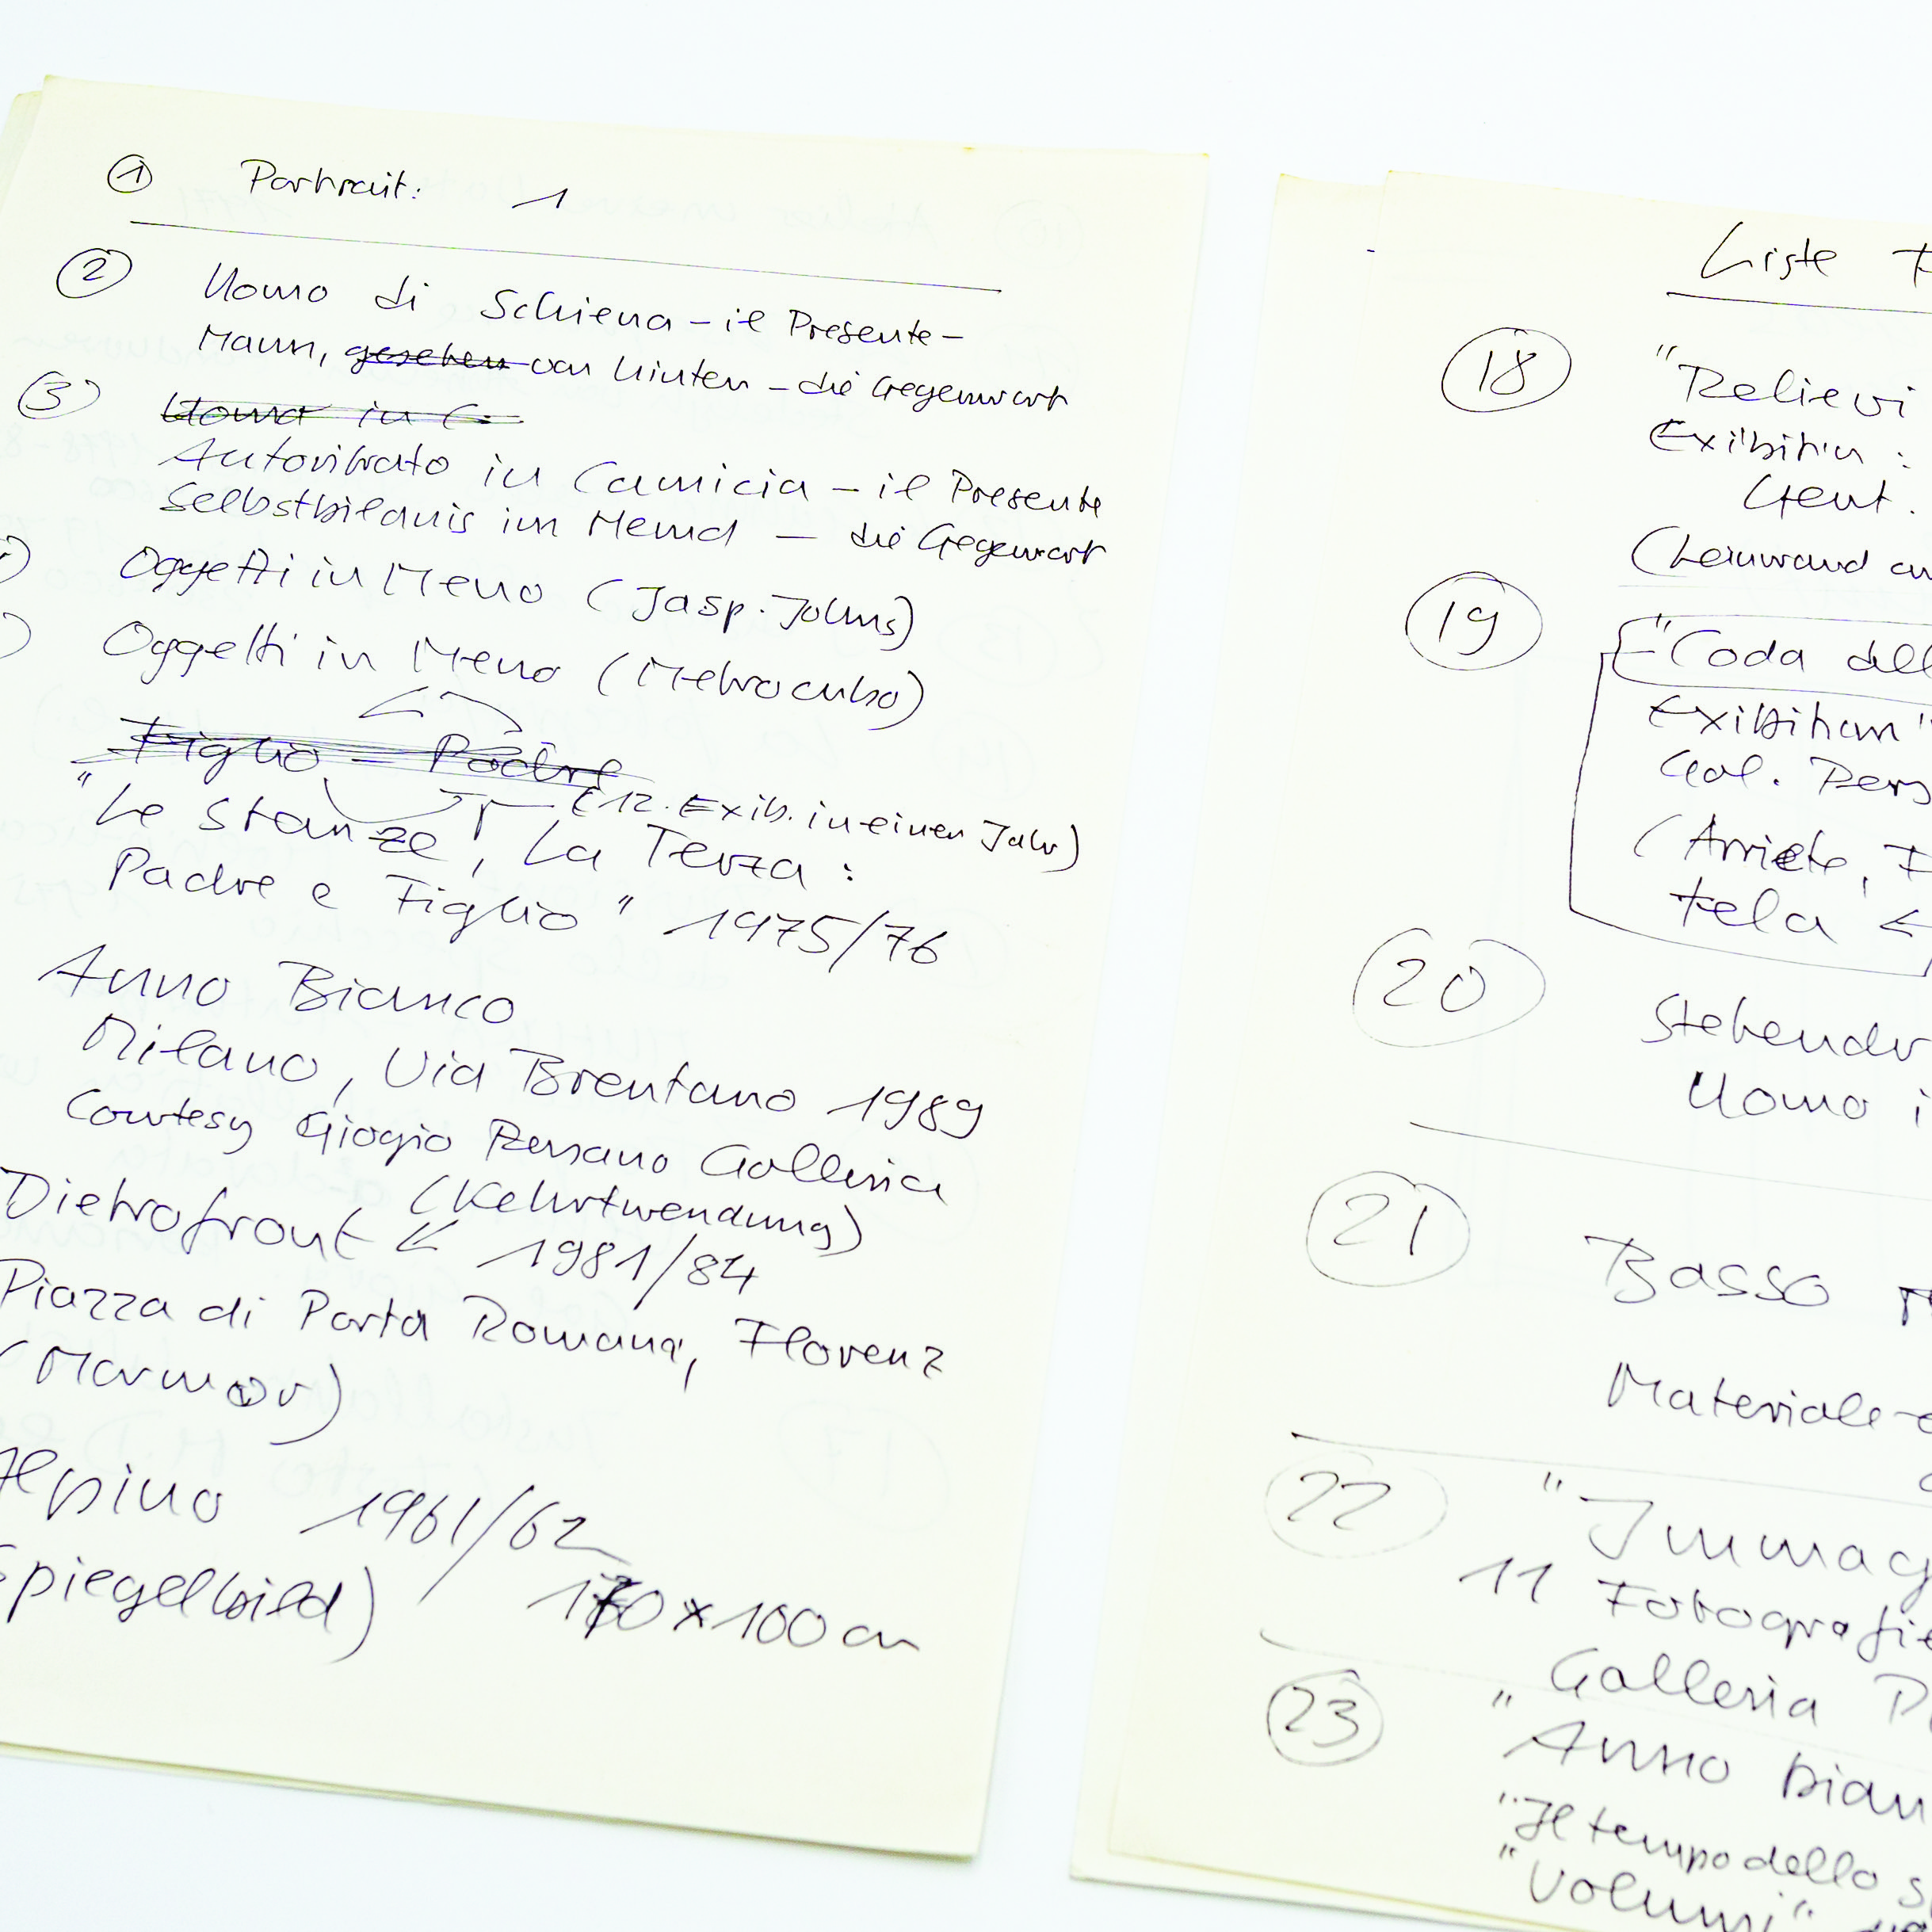 ① Portrait: 1
② Uomo di Schiena - il Presente -
Mann, gesehen von hinten - die Gegenwart
③ Uomo in C
Autoritrato in Camicia - il Presente
Selbstbildnis im Hemd - die Gegenwart
Oggetti in Meno (Jasp. Johns)
Oggetti in Meno (Metrocubo)
Figlio - Padre
(12. Exib. in einem Jahr)
"Le Stanze, La Terza:
Padre e Figlio" 1975/76
Anno Bianco
Milano, Via Brentano 1989
Courtesy Giogio Persano Galleria
(Kehrtwendung)
Dietrofront ← 1981/84
Piazza di Porta Romana, Florenz
(Marmor)
Alpino 1961/62
Spiegelbild) 170 x 100 cm
Liste
⑱ "Relievi
Exibition:
Gent.
(Leinwand
⑲ "Coda dell
Exibition"
Gal. Pers
(Arriete,
tela ←
⑳ Stehender
Uomo i
㉑ Basso
Materiale
㉒ "Immag
11 Fotografie
Galleria
㉓ "Anno bian
"Il tempo dello s
"Volumi"